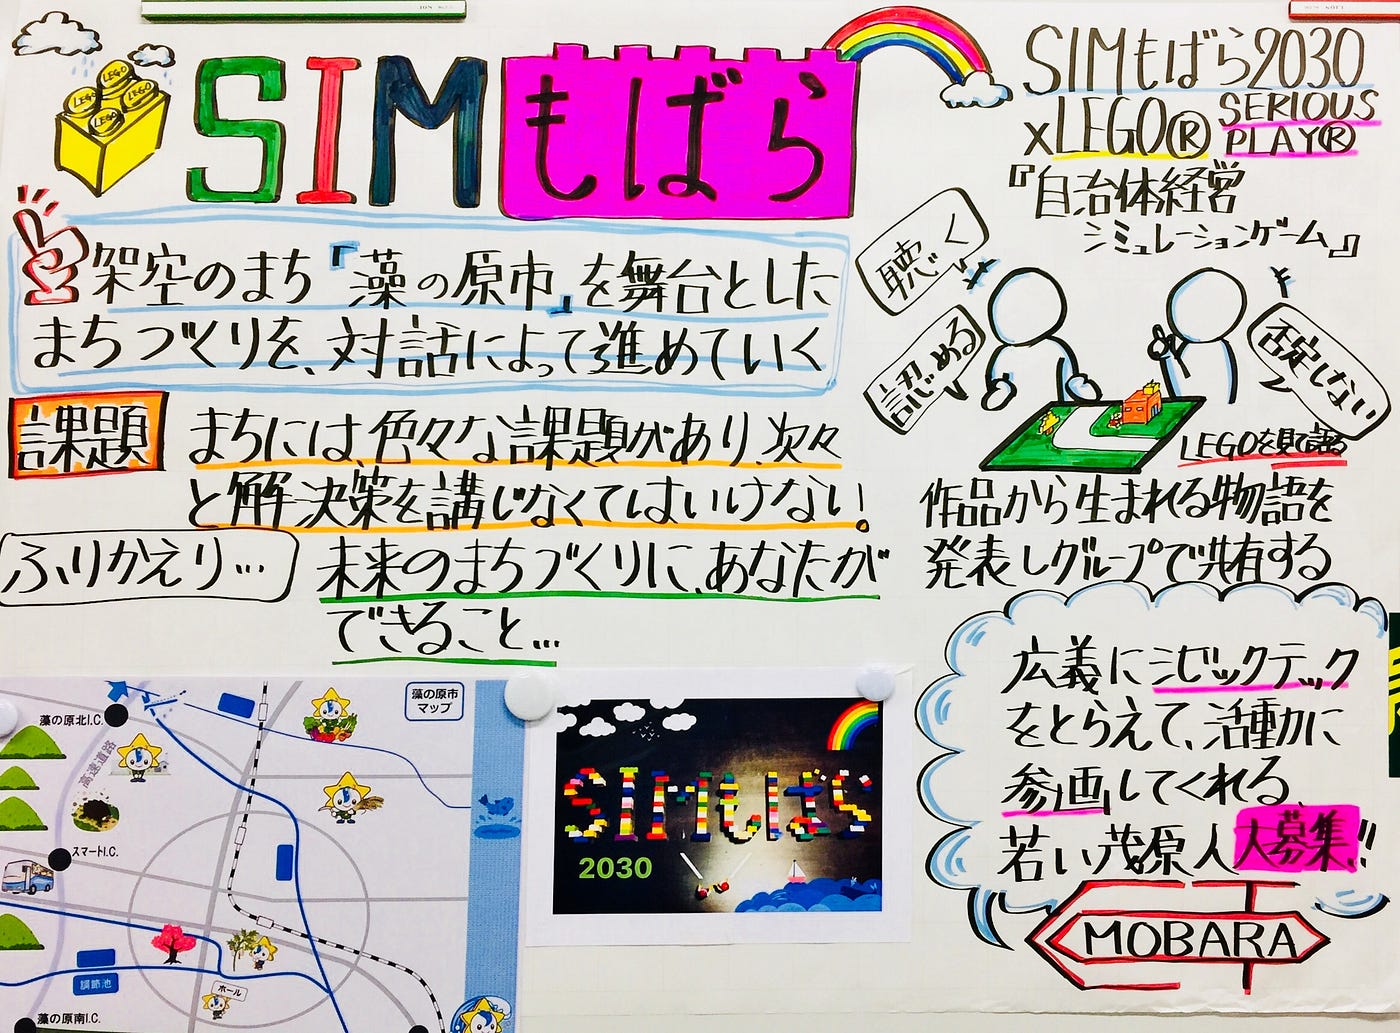 SIMもばら
LEGO
LEGO
LEGO
LEGO
架空のまち『藻の原市』を舞台とした
まちづくりを、対話によって進めていく
課題
まちには、色々な課題があり、次々
と解決策を講じなくてはいけない!
ふりかえり…
未来のまちづくりに、あなたが
できること…
SIMもばら2030
xLEGO® SERIOUS
PLAY®
『自治体経営
シミュレーションゲーム』
聴く
認める
否定しない
LEGOを見て語る
作品から生まれる物語を
発表しグループで共有する
広義にシビックテック
をとらえて、活動に
参画してくれる
若い茂原人大募集!!
MOBARA
藻の原市
マップ
藻の原北I.C.
高速道路
スマートI.C.
調節池
ホール
藻の原南I.C.
SIMもばら
2030